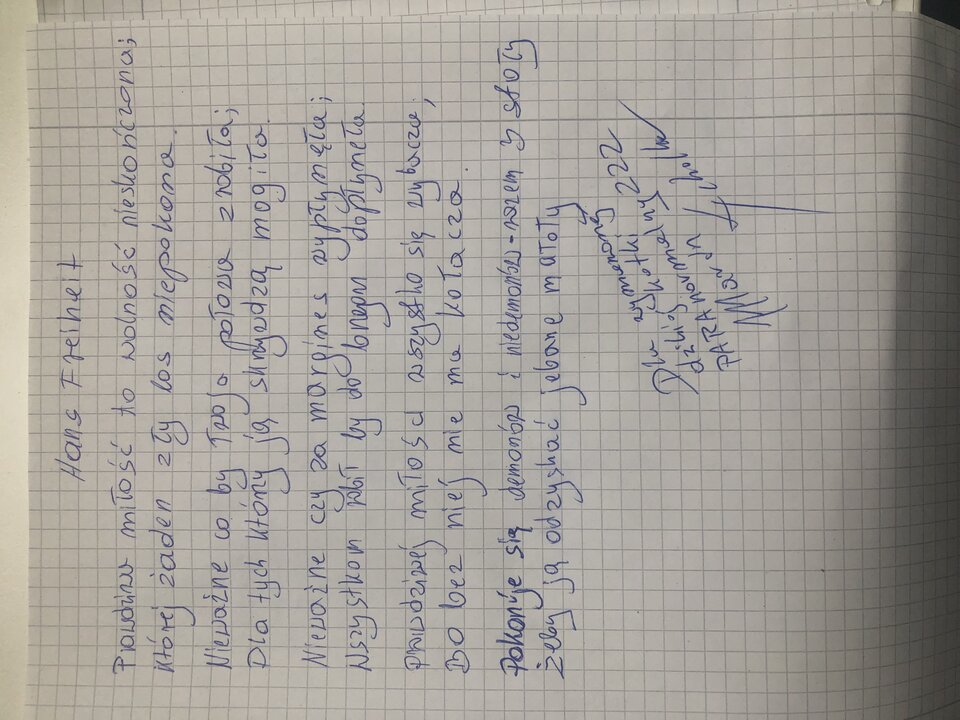 Hans Freihet
Prawdziwa miłość to wolność nieskończona;
której żaden zły los niepokona.
Nieważne co by Twoja połowa zrobiła;
Dla tych którzy ją skrzywdzą mogiła.
Nieważne czy za margines wypłynęła;
Wszystkom zbił by do brzegu dopłynęła.
Prawdziwej miłości wszystko się wybacza;
Bo bez niej nie ma kołacza.
Pokonuje się demonów i niedemonów-razem z stoły
Żeby ją odzyskać jebane matoły
Dla wymarzonej
dzikiej kotki
PARAnormalny 222
Marcin